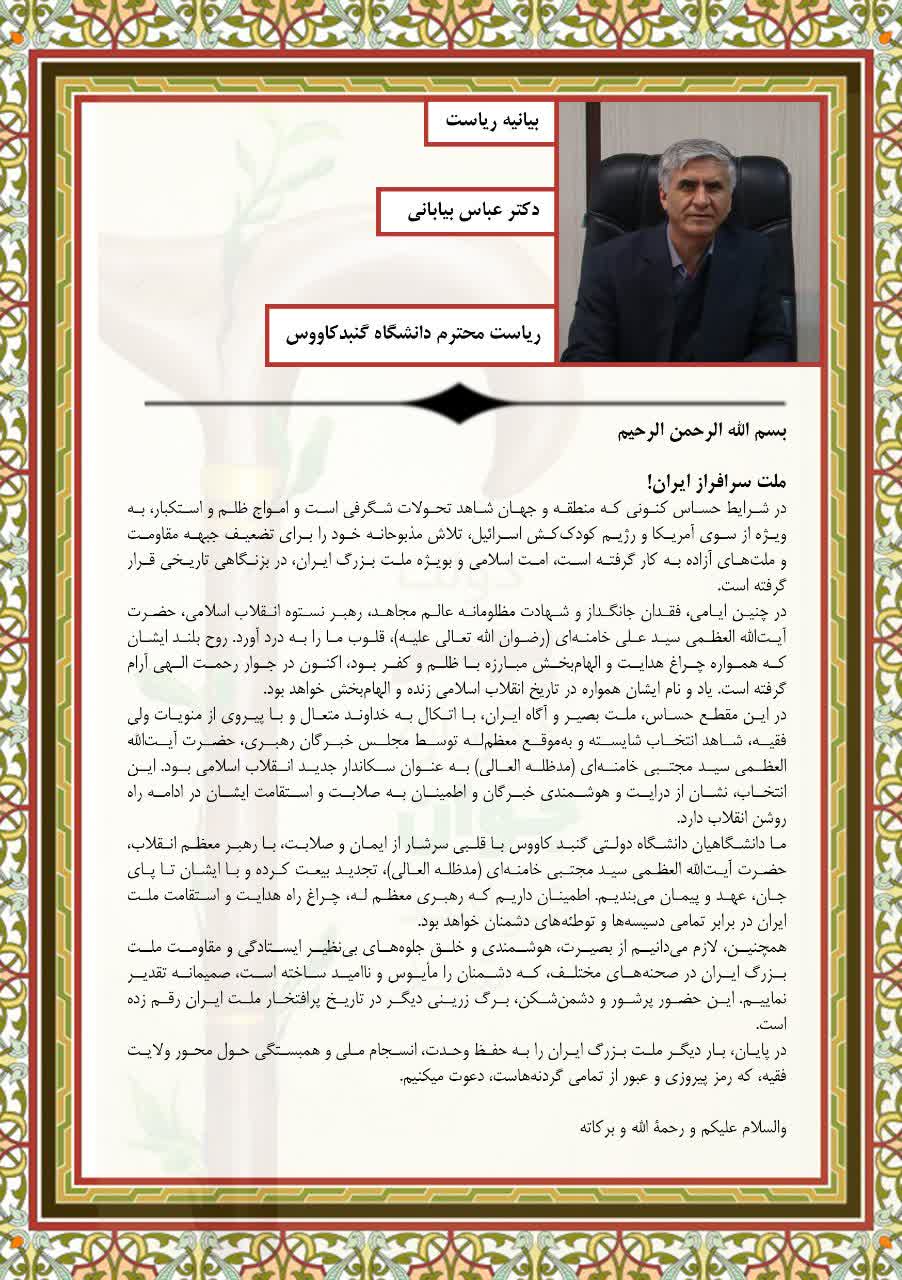 بیانیه ریاست
دکتر عباس بیابانی
ریاست محترم دانشگاه گنبدکاووس
بسم الله الرحمن الرحیم
ملت سرافراز ایران!
در شرایط حساس کنونی که منطقه و جهان شاهد تحولات شگرفی است و امواج ظلم و استکبار، به
ویژه از سوی آمریکا و رژیم کودک‌کش اسرائیل، تلاش مذبوحانه خود را برای تضعیف جبهه مقاومت
و ملت‌های آزاده به کار گرفته است، امت اسلامی و بویژه ملت بزرگ ایران، در بزنگاهی تاریخی قرار
گرفته است.
در چنین ایامی، فقدان جانگداز و شهادت مظلومانه عالم مجاهد، رهبر نستوه انقلاب اسلامی، حضرت
آیت‌الله العظمی سید علی خامنه‌ای (رضوان الله تعالی علیه)، قلوب ما را به درد آورد. روح بلند ایشان
که همواره چراغ هدایت و الهام‌بخش مبارزه با ظلم و کفر بود، اکنون در جوار رحمت الهی آرام
گرفته است. یاد و نام ایشان همواره در تاریخ انقلاب اسلامی زنده و الهام‌بخش خواهد بود.
در این مقطع حساس، ملت بصیر و آگاه ایران، با اتکال به خداوند متعال و با پیروی از منویات ولی
فقیه، شاهد انتخاب شایسته و به‌موقع معظم‌له توسط مجلس خبرگان رهبری، حضرت آیت‌الله
العظمی سید مجتبی خامنه‌ای (مدظله العالی) به عنوان سکاندار جدید انقلاب اسلامی بود. این
انتخاب، نشان از درایت و هوشمندی خبرگان و اطمینان به صلابت و استقامت ایشان در ادامه راه
روشن انقلاب دارد.
ما دانشگاهیان دانشگاه دولتی گنبد کاووس با قلبی سرشار از ایمان و صلابت، با رهبر معظم انقلاب،
حضرت آیت‌الله العظمی سید مجتبی خامنه‌ای (مدظله العالی)، تجدید بیعت کرده و با ایشان تا پای
جان، عهد و پیمان می‌بندیم. اطمینان داریم که رهبری معظم له، چراغ راه هدایت و استقامت ملت
ایران در برابر تمامی دسیسه‌ها و توطئه‌های دشمنان خواهد بود.
همچنین، لازم می‌دانیم از بصیرت، هوشمندی و خلق جلوه‌های بی‌نظیر ایستادگی و مقاومت ملت
بزرگ ایران در صحنه‌های مختلف، که دشمنان را مأیوس و ناامید ساخته است، صمیمانه تقدیر
نماییم. این حضور پرشور و دشمن‌شکن، برگ زرینی دیگر در تاریخ پرافتخار ملت ایران رقم زده
است.
در پایان، بار دیگر ملت بزرگ ایران را به حفظ وحدت، انسجام ملی و همبستگی حول محور ولایت
فقیه، که رمز پیروزی و عبور از تمامی گردنه‌هاست، دعوت میکنیم.
والسلام علیکم و رحمة الله و برکاته